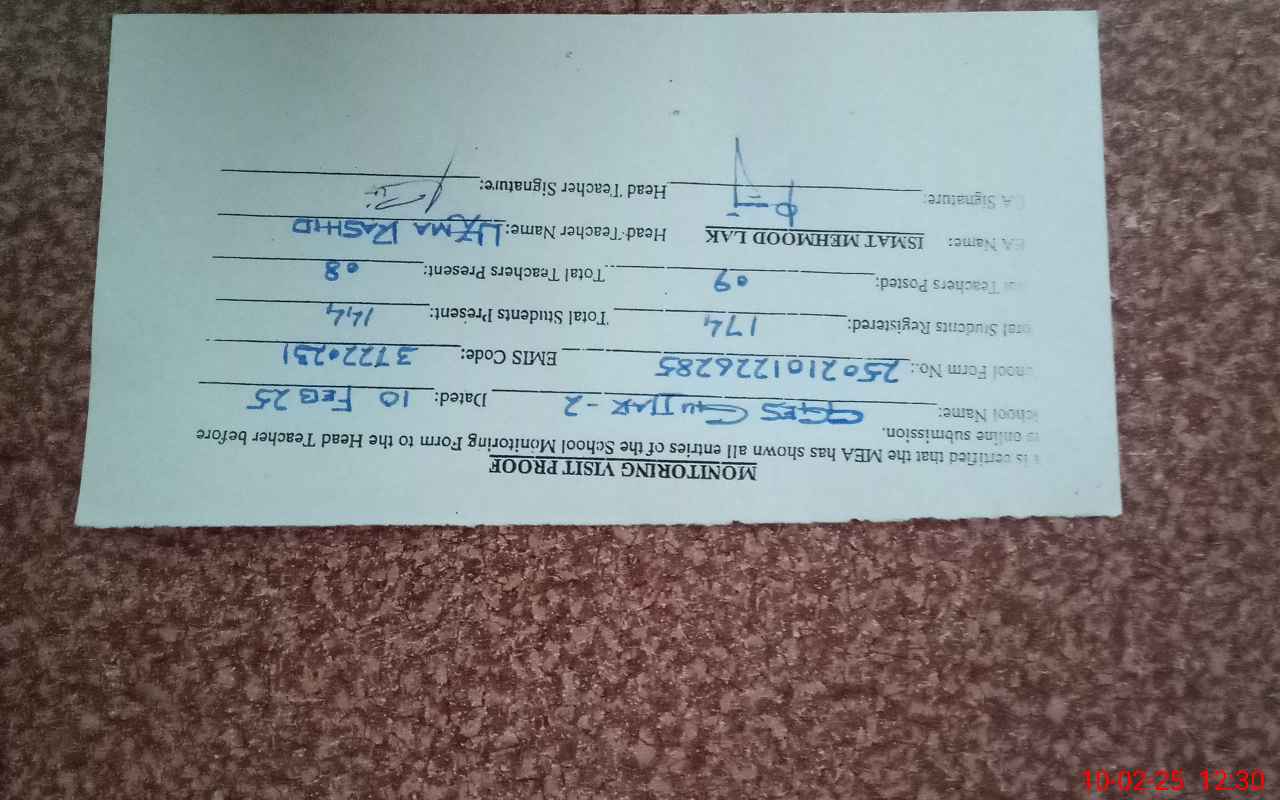 MONITORING VISIT PROOF
is certified that the MEA has shown all entries of the School Monitoring Form to the Head Teacher before
online submission.
School Name: GGES GUJJAR -2 Dated: 10 FEB 25
School Form No.: 2502101226285 EMIS Code: 37220231
Total Students Registered: 174 Total Students Present: 144
Total Teachers Posted: 09 Total Teachers Present: 08
EA Name: ISMAT MEHMOOD LAK Head Teacher Name: UZMA RASHID
A Signature: Head Teacher Signature:
10-02-25 12:30